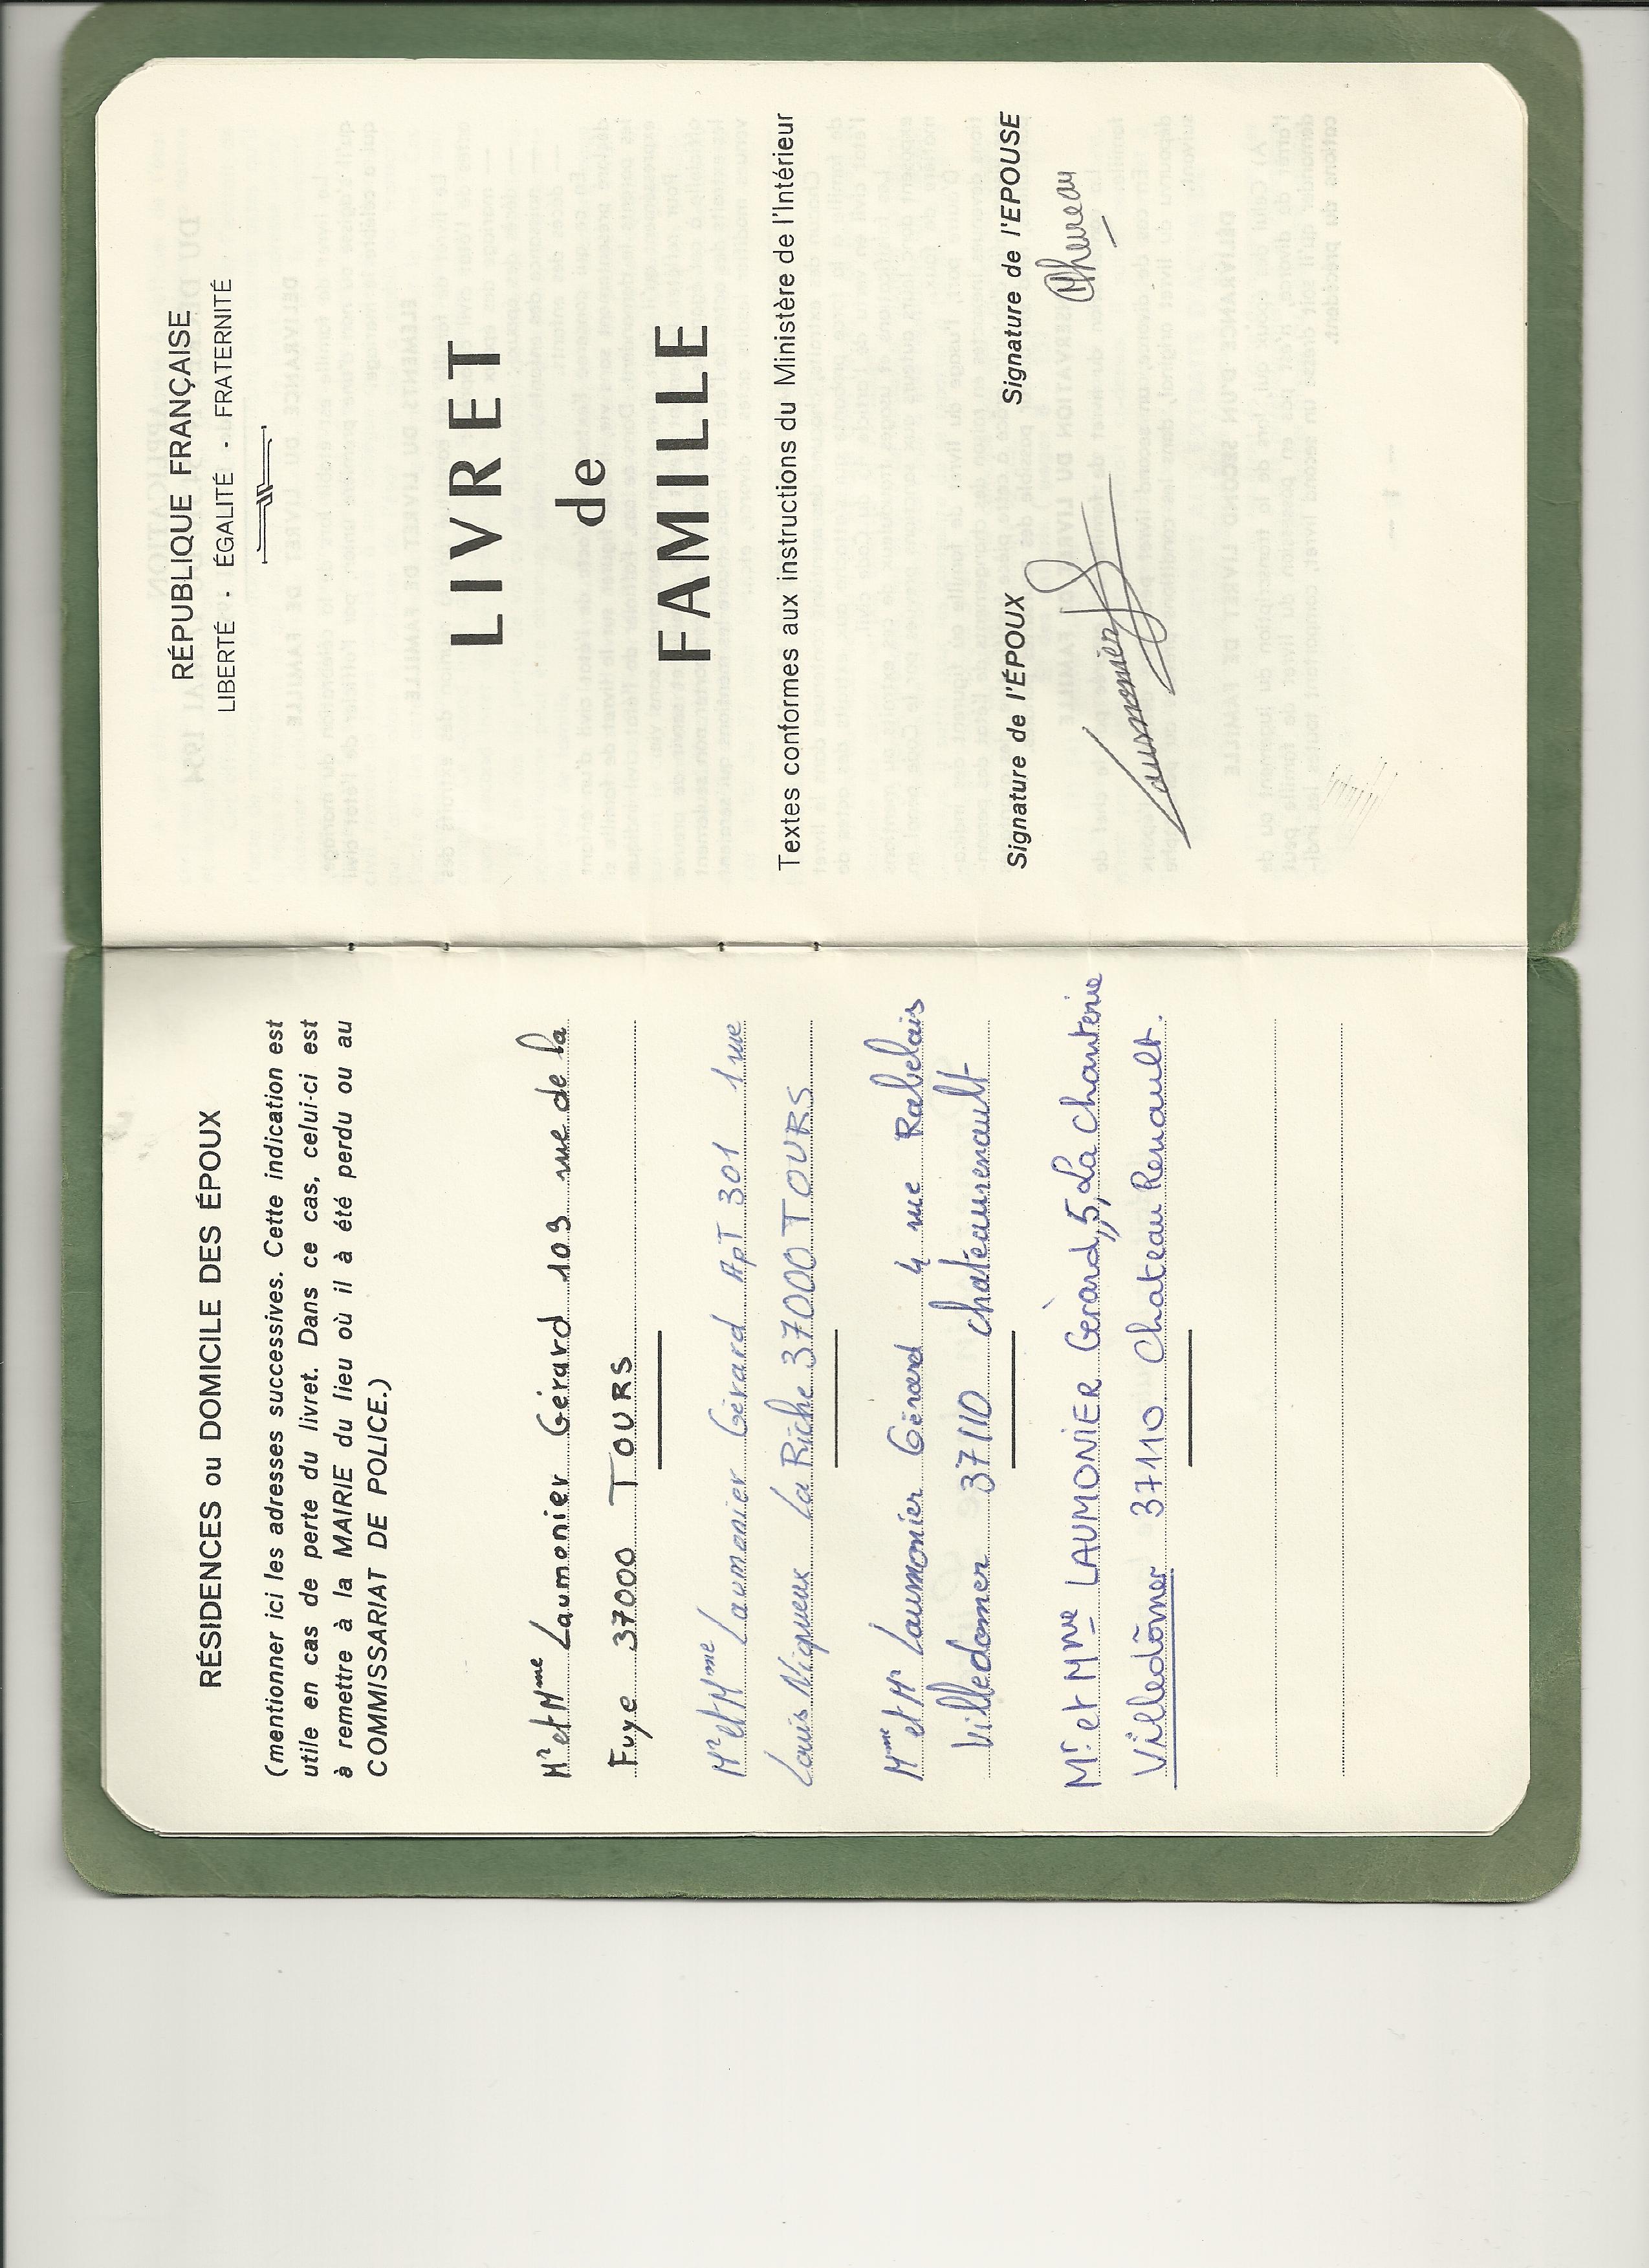 RÉSIDENCES ou DOMICILE DES ÉPOUX
(mentionner ici les adresses successives. Cette indication est
utile en cas de perte du livret. Dans ce cas, celui-ci est
à remettre à la MAIRIE du lieu où il à été perdu ou au
COMMISSARIAT DE POLICE.)
Mr et Mme Laumonier Gérard 109 rue de la
Fuye 37000 TOURS
Mr et Mme Laumonier Gérard ApT 301 1 rue
Louis Vigneux La Riche 37000 TOURS
Mme et Mr Laumonier Gérard 4 rue Rabelais
Villedomer 37110 chatéaurenault
Mr et Mme LAUMONIER Gérard, 5, La Chanterie
Villedômer 37110 Chateau Renault.
RÉPUBLIQUE FRANÇAISE
LIBERTÉ - ÉGALITÉ - FRATERNITÉ
LIVRET
de
FAMILLE
Textes conformes aux instructions du Ministère de l'Intérieur
Signature de l'ÉPOUX Signature de l'EPOUSE
Laumonier